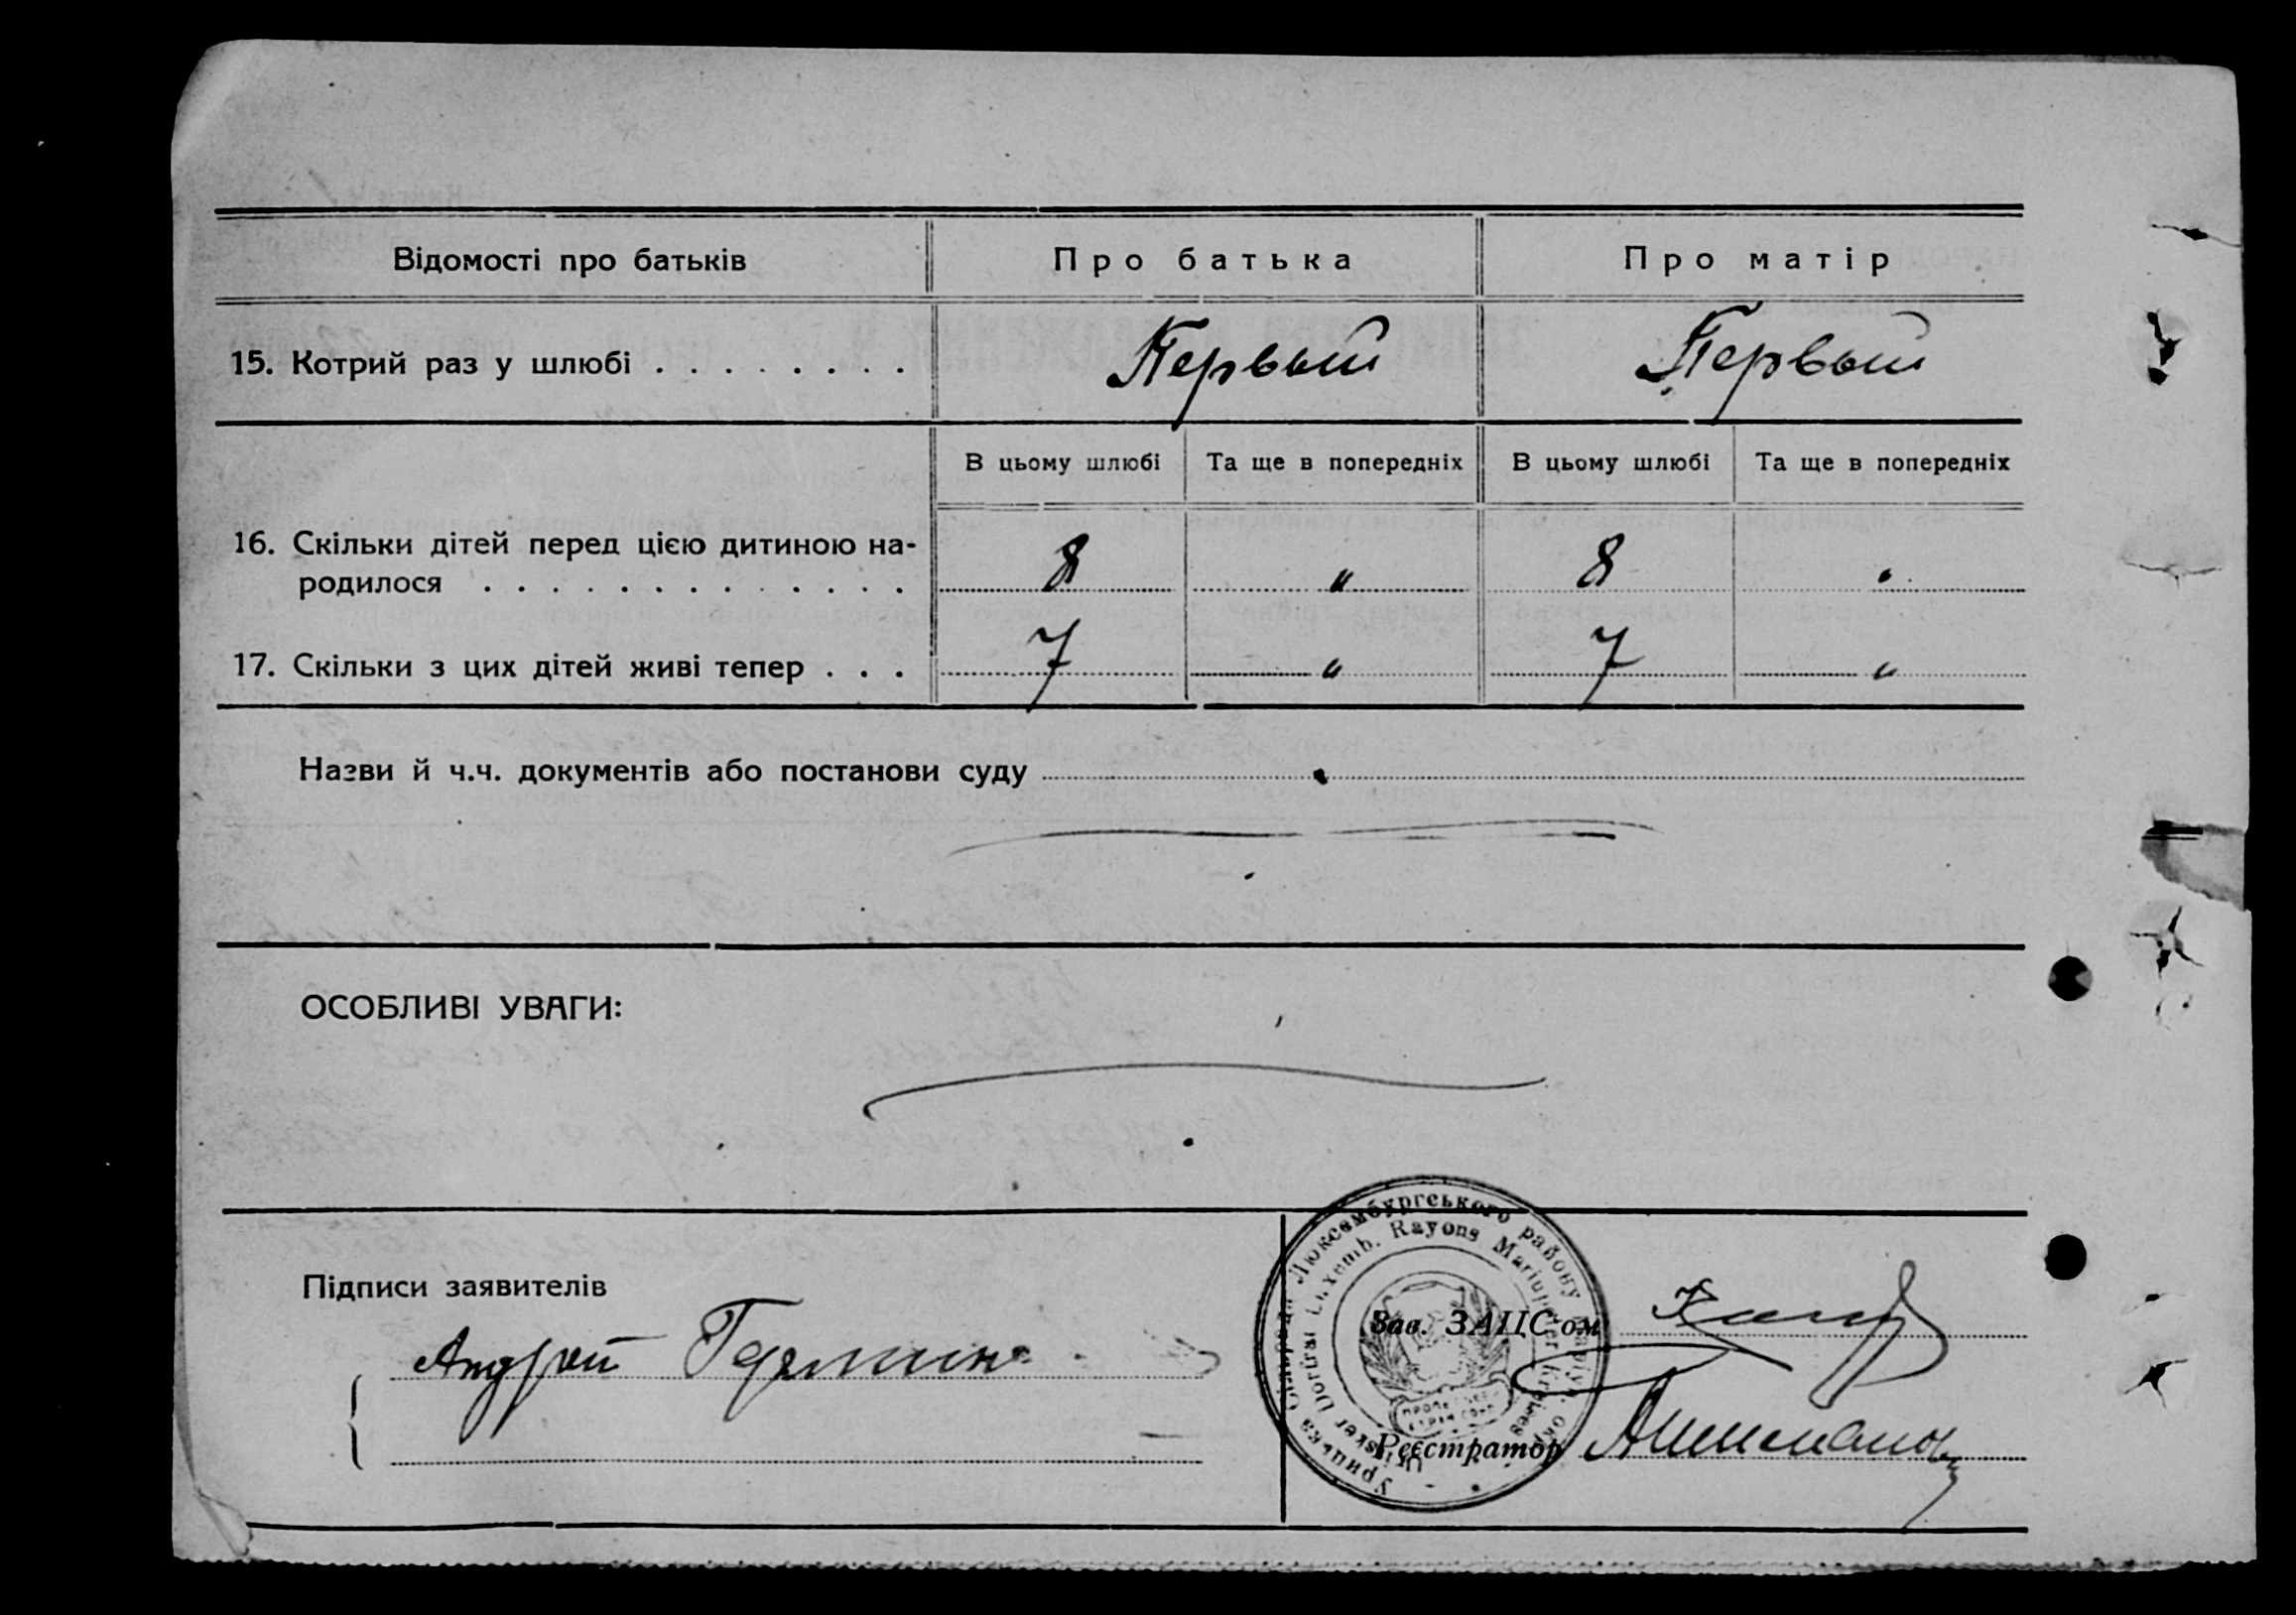 Відомості про батьків
Про батька
Про матір
15. Котрий раз у шлюбі . . . . . . . .
Первый
Первый
В цьому шлюбі
Та ще в попередніх
В цьому шлюбі
Та ще в попередніх
16. Скільки дітей перед цією дитиною на-
родилося . . . . . . . . . . . . .
8
"
8
"
17. Скільки з цих дітей живі тепер . . .
7
"
7
"
Назви й ч.ч. документів або постанови суду
ОСОБЛИВІ УВАГИ:
Підписи заявителів
Андрей
Зав. ЗАЦС-ом
Реєстратор
Урицька Сільрада Люксембургського району Маріуп. окр.
Dorfrat Luxemb. Rayons Mariupoler Kreises